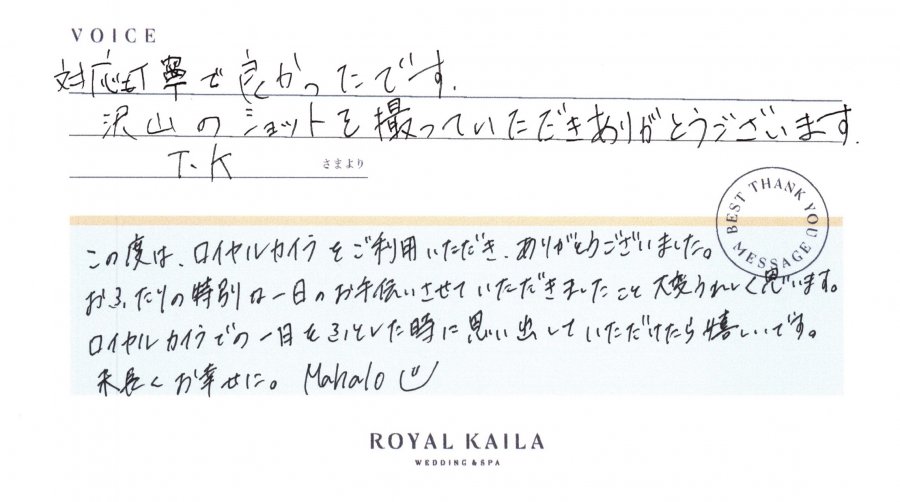 VOICE
対応も丁寧で良かったです.
沢山のショットを撮っていただきありがとうございます.
T.K さまより
BEST THANK YOU MESSAGE
この度は、ロイヤルカイラをご利用いただき、ありがとうございました。
おふたりの特別な一日のお手伝いさせていただきましたこと大変うれしく思います。
ロイヤルカイラでの一日をふとした時に思い出していただけたら嬉しいです。
末長くお幸せに。 Mahalo
ROYAL KAILA
WEDDING & SPA